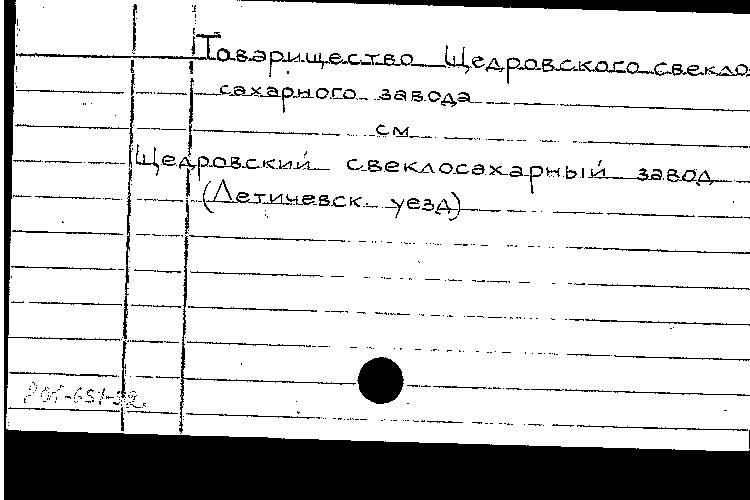 Товарищество Щедровского свекло
сахарного завода
см
Щедровский свеклосахарный завод
(Летичевск. уезд)